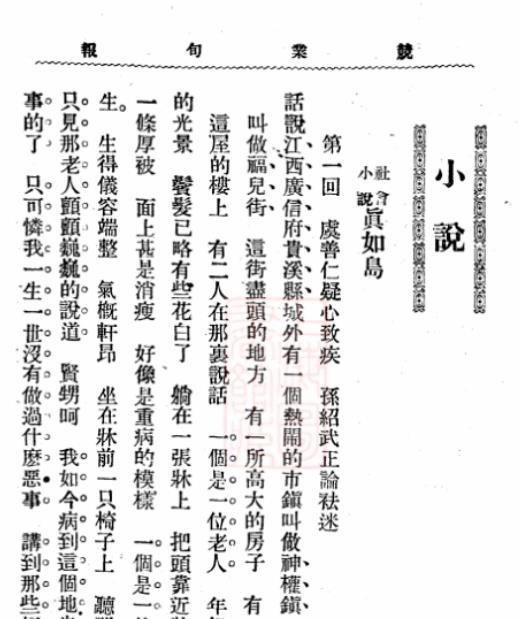 競業旬報
小說
社會小說 眞如島
第一回 虞善仁疑心致疾 孫紹武正論祛迷
話說江西廣信府貴溪縣城外有一個熱鬧的市鎮叫做神權鎮、
叫做福兒街、 這街盡頭的地方 有一所高大的房子 有
這屋的樓上 有二人在那裏說話 一個是一位老人 年
的光景 鬢髮已略有些花白了 躺在一張牀上 把頭靠近
一條厚被 面上甚是消瘦 好像是重病的模樣 一個是一
生。 生得儀容端整 氣概軒昂 坐在牀前一只椅子上 聽
只見那老人顫顫巍巍的說道 賢甥呵 我如今病到這個地
事的了 只可憐我一生一世沒有做過什麼惡事 講到那些